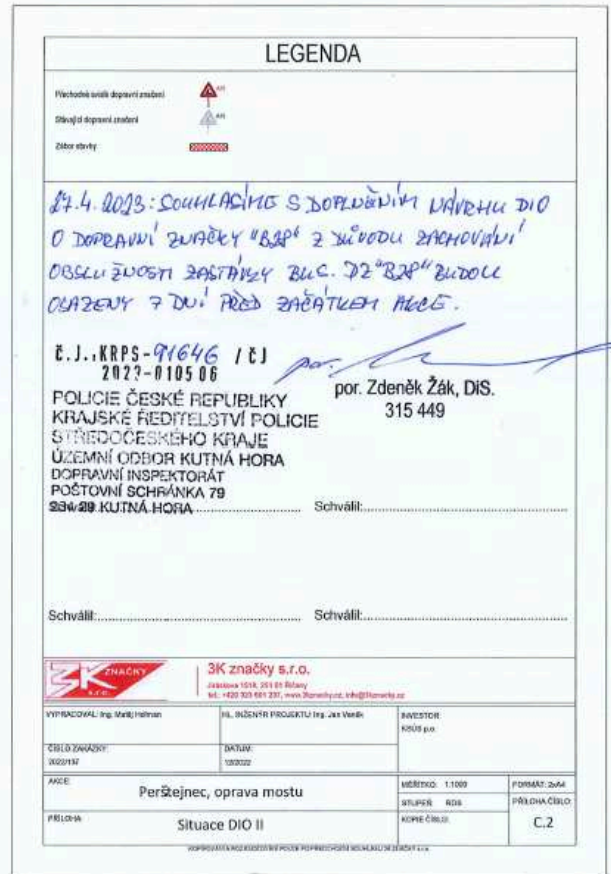 LEGENDA
Přechodné svislé dopravní značení
Stávající dopravní značení
Zábor stavby
27.4.2023: SOUHLASÍME S DOPLNĚNÍM NÁVRHU DIO
O DOPRAVNÍ ZNAČKY "B28" Z DŮVODU ZACHOVÁNÍ
OBSLUŽNOSTI ZASTÁVKY BUS. DZ "B28" BUDOU
OSAZENY 7 DNÍ PŘED ZAČÁTKEM AKCE.
Č.J.:KRPS-91646 / ČJ
2022-010506
por.
POLICIE ČESKÉ REPUBLIKY
KRAJSKÉ ŘEDITELSTVÍ POLICIE
STŘEDOČESKÉHO KRAJE
ÚZEMNÍ ODBOR KUTNÁ HORA
DOPRAVNÍ INSPEKTORÁT
POŠTOVNÍ SCHRÁNKA 79
284 29 KUTNÁ HORA
por. Zdeněk Žák, DiS.
315 449
Schválil:
Schválil: Schválil:
3K ZNAČKY s.r.o.
3K značky s.r.o.
VYPRACOVAL: Ing. Matěj Hofman
HL. INŽENÝR PROJEKTU: Ing. Jan Vaněk
INVESTOR:
KSÚS p.o.
ČÍSLO ZAKÁZKY:
2022/197
DATUM:
12/2022
AKCE:
Perštejnec, oprava mostu
MĚŘÍTKO: 1:1000
FORMÁT: 2xA4
STUPEŇ: RDS
PŘÍLOHA ČÍSLO:
PŘÍLOHA:
Situace DIO II
KOPIE ČÍSLO:
C.2